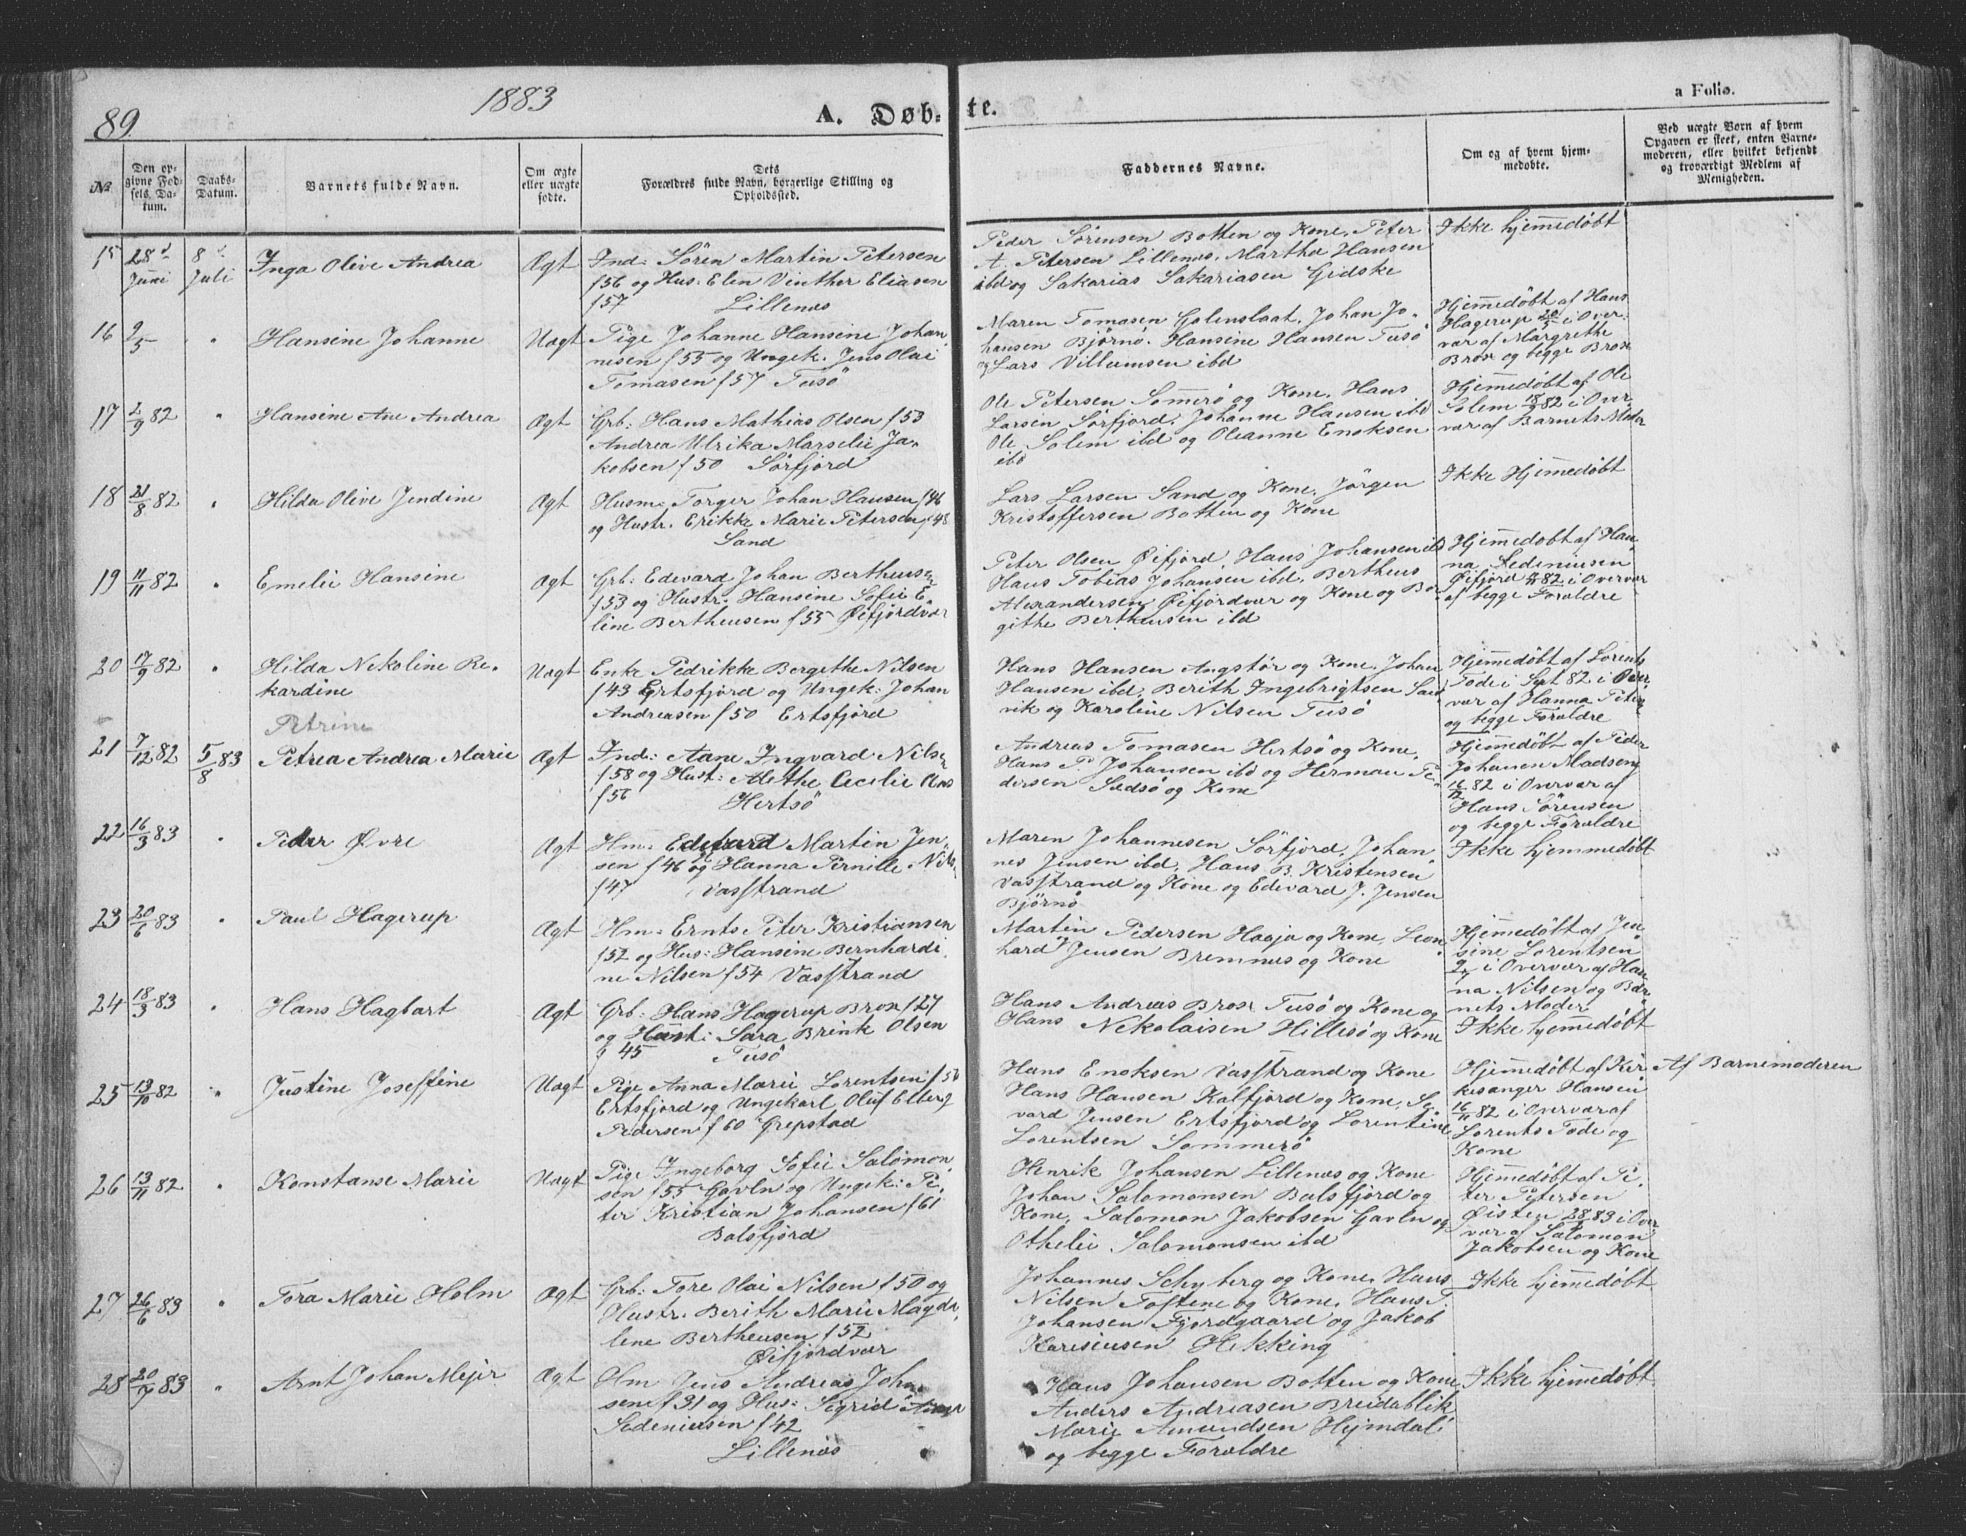 89.
1883
A. Døb=
te.
a Folio.
№
Den op-
givne Fød-
sels Da-
tum.
Daabs-
Datum.
Barnets fulde Navn.
Om ægte
eller uægte
fødte.
Dets
Forældres fulde Navn, borgerlige Stilling og
Opholdssted.
Faddernes Navne.
Om og af hvem hjem-
medøbte.
Ved uægte Børn af hvem
Opgaven er skeet, enten Barne-
moderen, eller hvilket bekjendt
og troværdigt Medlem af
Menigheden.
15
28d
Juni
8d
Juli
Inga Olive Andrea
Ægt
Ind: Sören Martin Petersen
f56 og Hus: Elen Vinther Eliasen
f57 Lillenæs
Peder Sørensen Botten og Kone, Peter
A. Petersen Lillenæs, Martha Hansen
ibd og Sakarias Sakariasen Gidske
Ikke hjemmedøbt
16
9/5
"
Hansine Johanne
Uægt
Pige Johanne Hansine Johan-
nesen f55 og Ungk. Jens Olai
Tomasen f57 Tusö
Maren Tomasen Galenslaat, Johan Jo-
hansen Bjørnö, Hansine Hansen Tusö
og Lars Villumsen ibd
Hjemmedøbt af Hans
Hagerup 20/5 i Over-
vær af Margrethe
Brox og begge Brox
17
2/9 82
"
Hansine Ane Andrea
Ægt
Grb: Hans Mathias Olsen f53
Andrea Ulrika Marselie Ja-
kobsen f50 Sörfjord
Ole Petersen Sommerø og Kone, Hans
Larsen Sørfjord, Johanne Hansen ibd
Ole Solem ibd og Oleanne Enoksen
ibd
Hjemmedøbt af Ole
Solem 18/9 82 i Over-
vær af Barnets Moder
18
21/8 82
"
Hilda Olive Jendine
Ægt
Husm: Torger Johan Hansen f46
og Hustr. Erikke Marie Petersen f48
Sand
Lars Larsen Sand og Kone, Jörgen
Kristoffersen Botten og Kone
Ikke Hjemmedøbt
19
11/11 82
Emelie Hansine
Ægt
Grb: Edevard Johan Bertheusen
f53 og Hustr. Hansine Sofie E-
line Bertheusen f55 Øifjordvær
Peter Olsen Øifjord, Hans Johansen ibd
Hans Tobias Johansen ibd, Bertheus
Alexandersen Øifjordvær og Kone og Bor-
githe Bertheusen ibd
Hjemmedøbt af Han-
na Sedeniusen
Øifjord 82 i Overvær
af begge Forældre
20
17/9 82
"
Hilda Nekoline Re-
kardine
Uægt
Enke Pedrikke Bergethe Nilsen
f43 Ertsfjord og Ungk: Johan
Andreasen f50 Ertsfjord
Hans Hansen Angstør og Kone, Johan
Hansen ibd, Berith Ingebrigtsen Sand-
vik og Karoline Nilsen Tusö
Hjemmedøbt af Lorents
Tode i Sept 82 i Over-
vær af Hanna Peter-
og begge Forældre
Petrine
21
7/12 82
5/8 83
Petrea Andrea Marie
Ægt
Ind: Aane Ingvard Nils-
f58 og Hust: Alethe Cecilie
f56 Hertsö
Andreas Tomasen Hertsö og Kone,
Hans P Johansen ibd og Herman Pe-
dersen Sedsö og Kone
Hjemmedøbt af Peder
Johanen Madsen
16/12 82 i Overvær af
Hans Sörensen
og begge Forældre
22
16/3 83
"
Peder Øvre
Ægt
Hm: Edevard Martin Jen-
sen f46 og Hanna Pernille Nils-
f47 Vasstrand
Maren Johannesen Sörfjord, Johan-
nes Jensen ibd, Hans B. Kristensen
Vasstrand og Kone og Edevard J. Jensen
Bjørnö
Ikke hjemmedøbt
23
20/6 83
"
Paul Hagerup
Ægt
Hm: Ernts Peter Kristiansen
f52 og Hus: Hansine Bernhardi-
ne Nilsen f54 Vasstrand
Martin Pedersen Haaja og Kone, Leon-
hard Jensen Bremnæs og Kone
Hjemmedøbt af Jen-
sine Lorentsen
9/7 i Overvær af Han-
na Nilsen og Bar-
nets Moder
24
18/3 83
"
Hans Hagbart
Ægt
Grb: Hans Hagerup Brox f27
og Hust: Sara Brink Olsen
f 45 Tusö
Hans Andreas Brox Tusö og Kone og
Hans Nekolaisen Hillesö og Kone
Ikke hjemmedøbt
25
13/10 82
"
Justine Joseffine
Uægt
Pige Anna Marie Lorentsen f56
Ertsfjord og Ungekarl Oluf Elberg
Pedersen f60 Grepstad
Hans Enoksen Vasstrand og Kone
Hans Hansen Kalfjord og Kone, Se-
vard Jensen Ertsfjord og Lorentine
Lorentsen Sommerö
Hjemmedøbt af Kir-
kesanger Hansen
16/11 82 i Overvær af
Lorents Tode og
Kone
Af Barnemoderen
26
13/11 82
"
Konstanse Marie
Uægt
Pige Ingeborg Sofie Salomon-
sen f55 Gavln og Ungek: Pe-
ter Kristian Johansen f61
Balsfjord
Henrik Johansen Lillenæs og Kone
Johan Salomonsen Balsfjord og
Kone, Salomon Jakobsen Gavln og
Othelie Salomonsen ibd
Hjemmedøbt af Pe-
ter Petersen
Øisten 83 i Over-
vær af Salomon
Jakobsen og Kone
27
26/6 83
"
Tora Marie Holm
Ægt
Grb: Tore Olai Nilsen f50 og
Hustr. Berith Marie Magda-
lene Bertheusen f52
Øifjordvær
Johannes Schyberg og Kone, Hans
Nilsen Toftene og Kone, Hans T.
Johansen Fjordgaard og Jakob
Kariseusen Hekking
Ikke hjemmedøbt
28
83
"
Arnt Johan Mejer
Ægt
Hm Jens Andreas Johan-
sen f31 og Hus: Sigrid
Sedeniusen f42
Lillenæs
Hans Johansen Botten og Kone
Anders Andreasen Breidablik
Marie Amundsen Hejmdal
og begge Forældre
Ikke hjemmedøbt